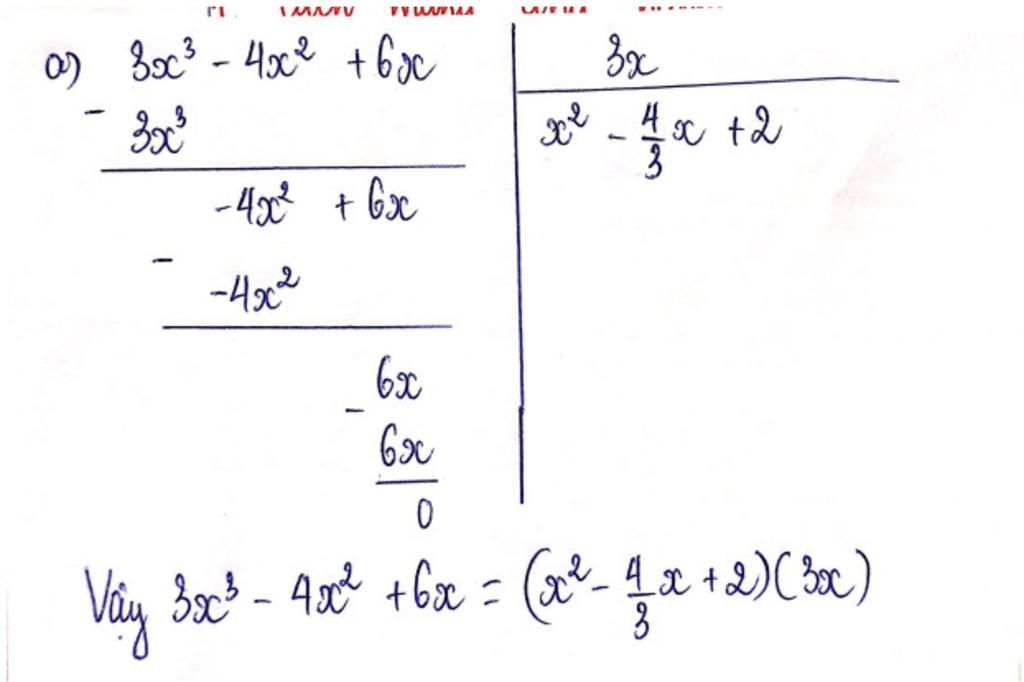 a) 3x³ - 4x² + 6x | 3x
- 3x³ | x² - 4/3 x + 2
-4x² + 6x
-
-4x²
6x
-
6x
0
Vậy 3x³ - 4x² + 6x = (x² - 4/3 x + 2)(3x)